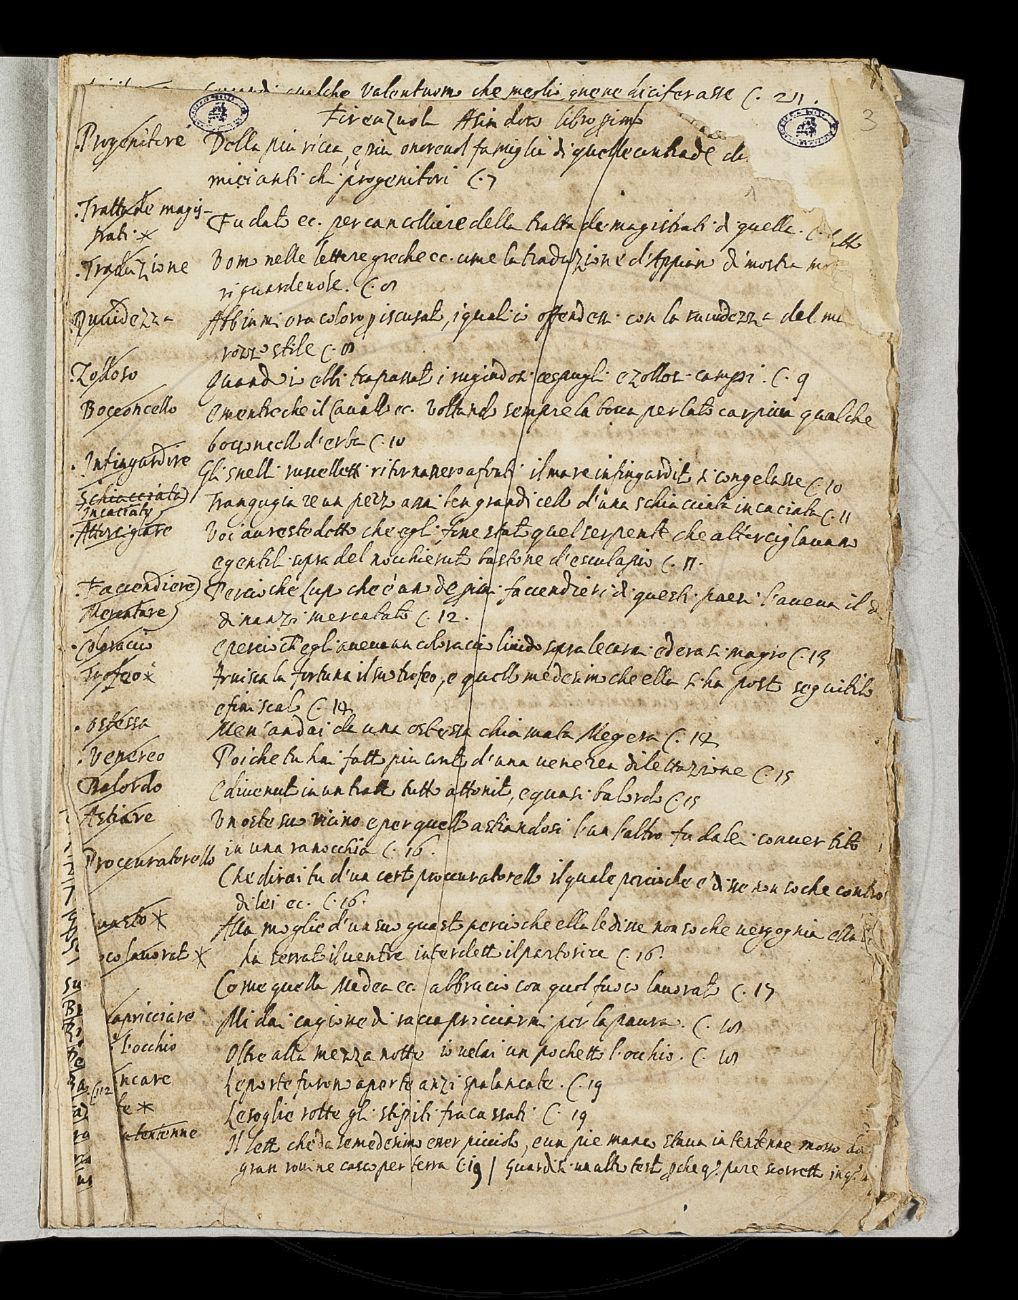 qualche valentuomo che meglio gnene diciferasse C. 211.
Firenzuola Asin doro libro primo
3
Progenitore Della piu ricca, e piu onorevol famiglia di quelle contrade
1
micianti chi progenitori C. 7
Tratta de magis-
trati * Fu dato ec. per cancelliere della tratta de magistrati di quella
Traduzione Uom nelle lettere greche ec. come la traduzione d'Appian di mostra
riguardevole. C. 8
Ruvidezza Abbiami ora coloro p iscusato, i quali io offendessi con la ruvidezza del mi
rozzo stile C. 8
Zolloso Quando i ebbi trapassati i rugiadosi cespugli e zollosi campi. C. 9
Bocconcello E mentre che il Cavallo ec. voltando sempre la bocca per lato carpiva qualche
bocconcello d'erba C. 10
Infingardire Gli snelli ruscelletti ritornassero a fonti il mare infingardito si congelasse C. 10
Schiacciata)
Incaciata Trangugiare un pezzo assai ben grandicello d'una schiacciata incaciata C. 11
Attorcigliare Voi avreste detto che egli fosse stato quel serpente che attorcigliavano
e gentil sopra del nocchieruto bastone d'esculapio C. 11.
Faccendiere) Percioche Lupo che è un de piu faccendieri di questi paesi l'aveva il di
Mercatare) dinanzi mercatato C. 12.
Coloraccio e percio ch'egli aveva un coloraccio livido sopra le carni ed era si magro C. 13
Trofeo * Fruisca la fortuna il suo trofeo, e quello medesimo che ella s'ha posto seguitilo
e finiscalo C. 14
Ostessa Men'andai da una ostessa chiamata Megera C. 14
Venereo Poi che tu hai fatto piu conto d'una venerea dilettazione C. 15
Balordo E divenuto in un tratto tutto attonito, e quasi balordo C. 15
Astiare Un oste suo vicino e per quello astiandosi l'un l'altro fu da lei convertito
in una ranocchia C. 16.
Proccuratorello Che dirai tu d'un certo proccuratorello il quale percioche e' disse non so che contro
di lei ec. C. 16.
* Alla moglie d'un suo questo percioche ella le disse non so che vergogna ella
ha serrato il ventre interdetto il partorire C. 16
oco lavorato * Come quella Medea ec. abbracio con quel fuoco lavorato C. 17
apricciare Mi dai cagione di raccapricciarmi per la paura. C. 18
l'occhio Oltre alla mezza notte io velai un pochetto l'occhio. C. 18
ncare Le porte furono aperte anzi spalancate. C. 19
te * Le soglie rotte gli stipiti fracassati C. 19
ntentenne Il letto che da se medesimo esser picciolo, e un pie manco stava in tentenne mosso da
gran rovine casco per terra C. 19 / Guardisi un altro testo pche q.o pare scorretto in q.o